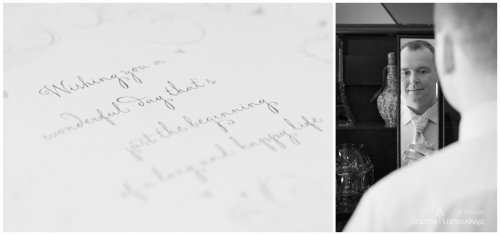 Wishing you a
wonderful day, that's
just the beginning,
of a long and happy life